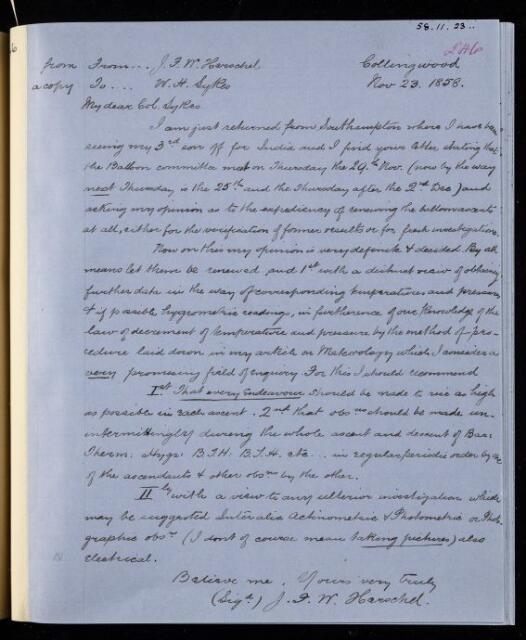 58.11.23..
246
from From... J. F. W. Herschel Collingwood
a copy To.... W. H. Sykes Nov 23. 1858.
My dear Col. Sykes
I am just returned from Southampton where I have been
seeing my 3rd son off for India and I find your letter stating that
the Balloon committee meet on Thursday the 29th Nov. (now by the way
next Thursday is the 25th and the Thursday after the 2nd Dec) and
asking my opinion as to the expediency of renewing the balloon ascents
at all, either for the verification of former results or for fresh investigations.
Now on this my opinion is very definite & decided. By all
means let them be renewed and 1st with a distinct view of obtaining
further data in the way of corresponding temperatures and pressures
& if possible hygrometric readings, in furtherance of our knowledge of the
law of decrement of temperature and pressure by the method of pro-
cedure laid down in my article on Meteorology which I consider a
very promising field of enquiry. For this I should recommend
Ist. That every Endeavour should be made to rise as high
as possible in each ascent. 2nd that obsns should be made un-
intermittingly during the whole ascent and descent of Bar:
Therm: Hygr: B.T.H: B.T.H. etc... in regular periodic order by one
of the ascendants & other obsns by the other.
IIly with a view to any ulterior investigation which
may be suggested Interalia Actinometric & Photometric or Photo-
graphic obsns (I dont of course mean taking pictures) also
electrical.
Believe me, Yours very truly
(Sigd.) J. F. W. Herschel.